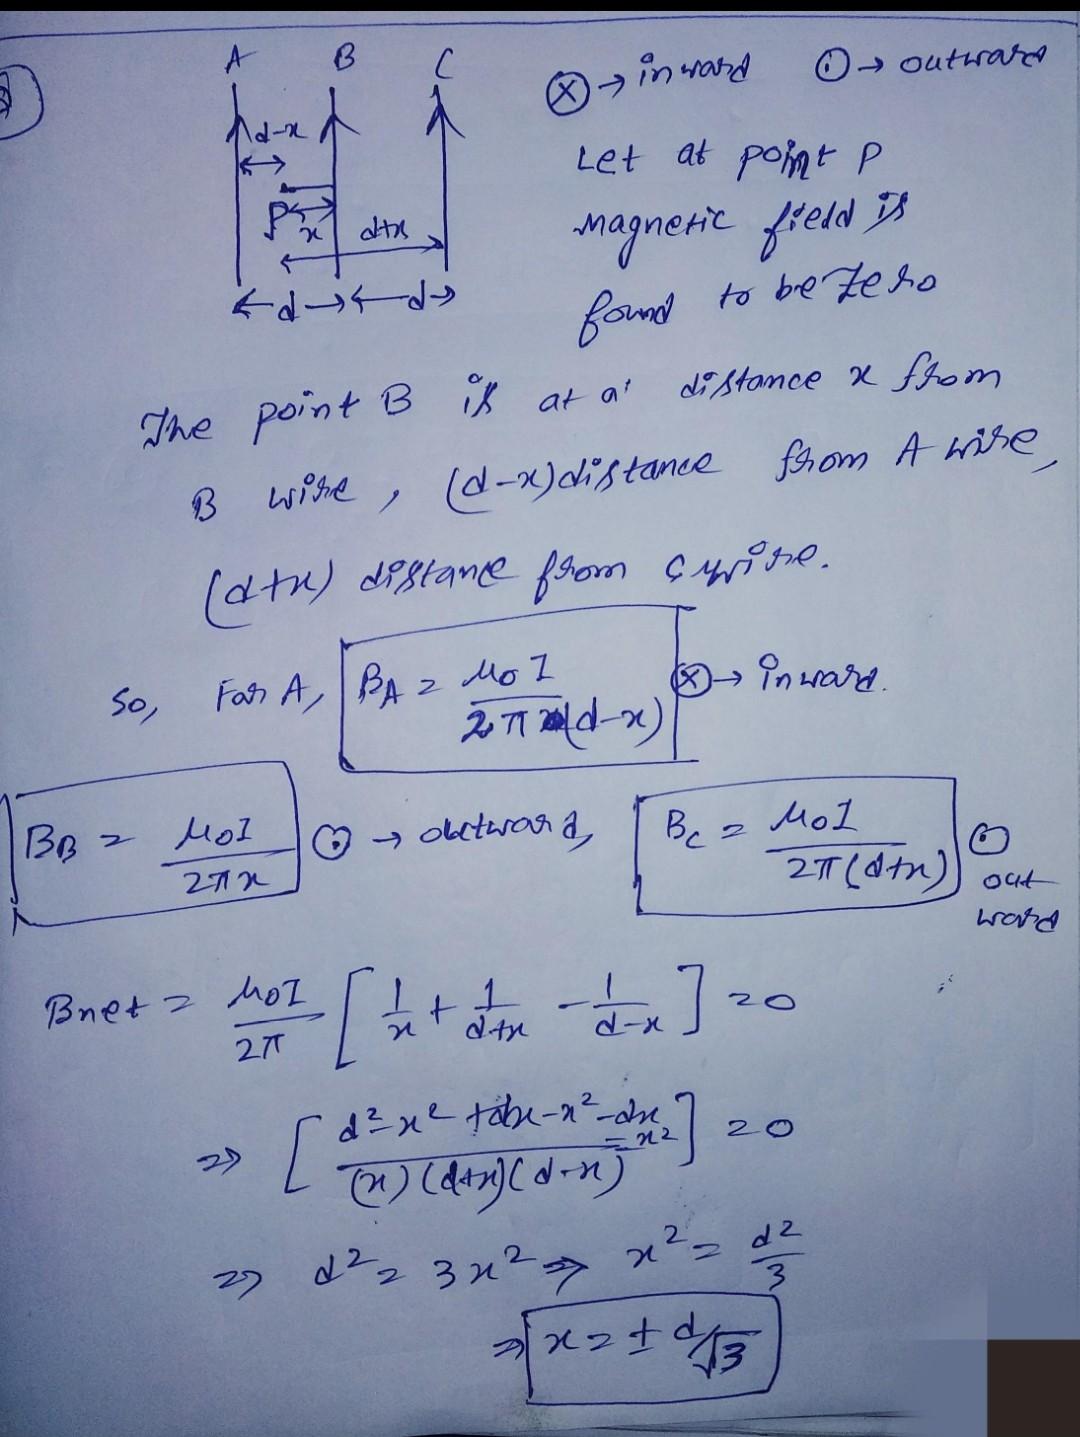 A B C
⊗ → inward ⊙ → outward
d-x
Let at point P
P x d+x
magnetic field is
d d
found to be zero
The point B is at a' distance x from
B wire, (d-x) distance from A wire,
(d+x) distance from C wire.
So, For A, B_A = μ₀I / 2π(d-x) ⊗ → inward.
B_B = μ₀I / 2πx ⊙ → outward, B_C = μ₀I / 2π(d+x) ⊙ outward
Bnet = μ₀I / 2π [ 1/x + 1/d+x - 1/d-x ] = 0
⇒ [ d²-x²+dx-x²-dx-x² / (x)(d+x)(d-x) ] = 0
⇒ d² = 3x² ⇒ x² = d²/3
⇒ x = ± d/√3